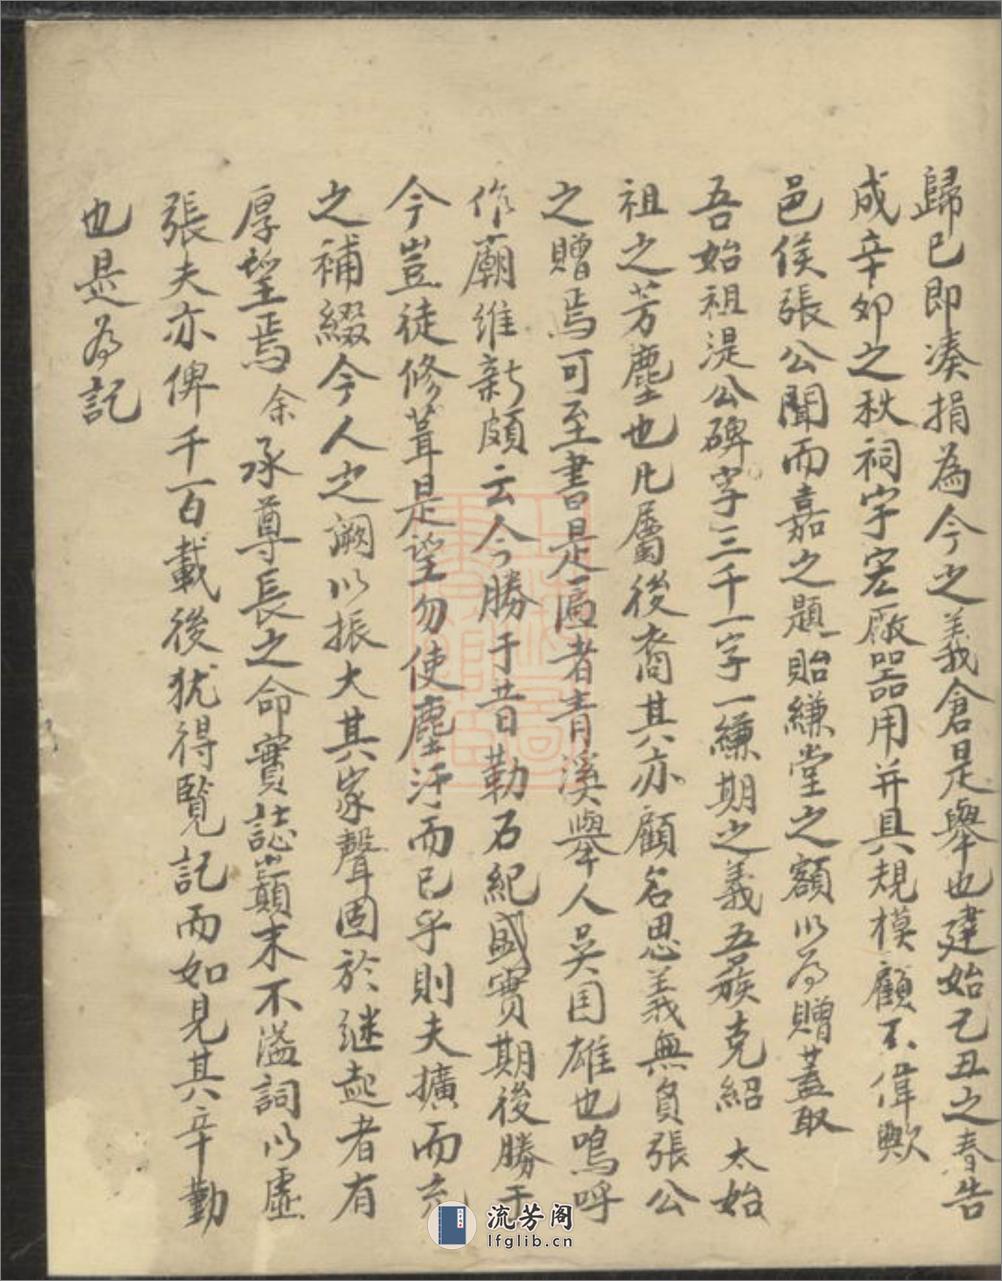 歸已即凑捐為今之義倉是舉也建始乙丑之春告
成辛卯之秋祠宇宏厰器用并具規模顧不偉歟
邑侯張公聞而嘉之題貽縑堂之額以為贈蓋取
吾始祖湜公碑字三千一字一縑期之義吾族克紹太始
祖之芳塵也凡屬後裔其亦顧名思義無負張公
之贈焉可至書是匾者青溪舉人吳国雄也嗚呼
作廟維新頗云今勝于昔勒石紀盛實期後勝于
今豈徒修葺是望勿使塵汙而已乎則夫擴而充
之補綴今人之闕以振大其家聲固於継起者有
厚望焉余承尊長之命實誌巔末不溢詞以虛
張夫亦俾千百載後犹得覽記而如見其辛勤
也是為記
流芳阁
lfglib.cn